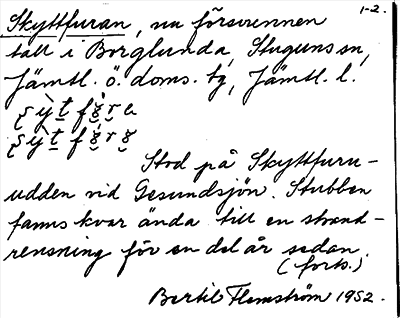 1-2.
Skyttfuran, nu försvunnen
tall i Borglunda, Stuguns sn,
Jämtl. ö. doms. tg, Jämtl. l.
Stod på Skyttfuru-
udden vid Gesundsjön. Stubben
fanns kvar ända till en strand-
rensning för en del år sedan.
(forts.)
Bertil Flemström 1952.